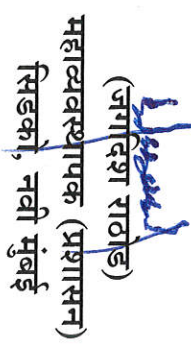 (जगदिश राठोड)
महाव्यवस्थापक (प्रशासन)
सिडको, नवी मुंबई